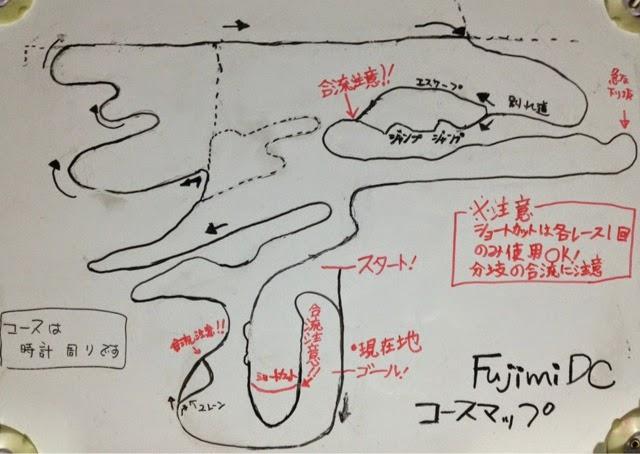 エスケープ
合流注意!!
別れ道
急な
下り坂
ジャンプ ジャンプ
※注意
ショートカットは各レース1回
のみ使用OK!
分岐の合流に注意
スタート!
コースは
時計周りです
合流注意!!
合流注意!!
・現在地
ショートカット
ゴール!
2レーン
Fujimi DC
コースマップ